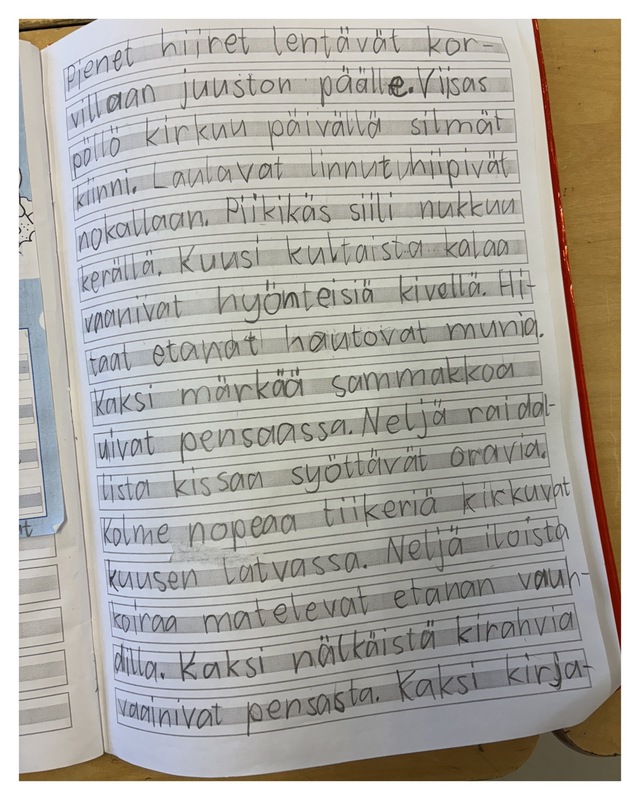 Pienet hiiret lentävät kor-
villaan juuston päälle. Viisas
pöllö kirkuu päivällä silmät
kiinni. Laulavat linnut hiipivät
nokallaan. Piikikäs siili nukkuu
kerällä. Kuusi kultaista kalaa
vaanivat hyönteisiä kivellä. Hi-
taat etanat hautovat munia.
Kaksi märkää sammakkoa
uivat pensaassa. Neljä raidal-
lista kissaa syöttävät oravia.
Kolme nopeaa tiikeriä kirkuvat
kuusen latvassa. Neljä iloista
koiraa matelevat etanan vauh-
dilla. Kaksi nälkäistä kirahvia
vaainivat pensasta. Kaksi kirja-